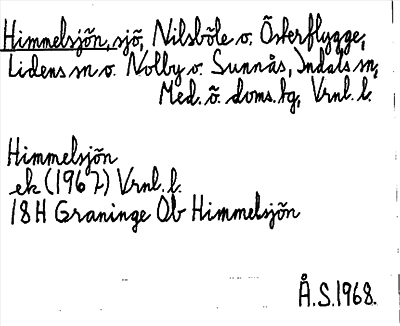 Himmelsjön, sjö, Nilsböle o. Österflygge,
Lidens sn o. Nolby o. Sunnås, Indals sn,
Med. ö. doms. tg, Vrnl. l.
Himmelsjön
ek (1967) Vrnl. l.
18H Graninge Ob Himmelsjön
Å.S.1968.